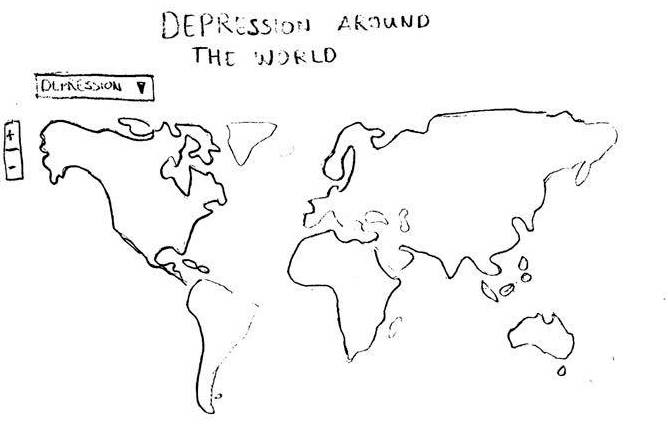 DEPRESSION AROUND
THE WORLD
DEPRESSION ▼
+
-